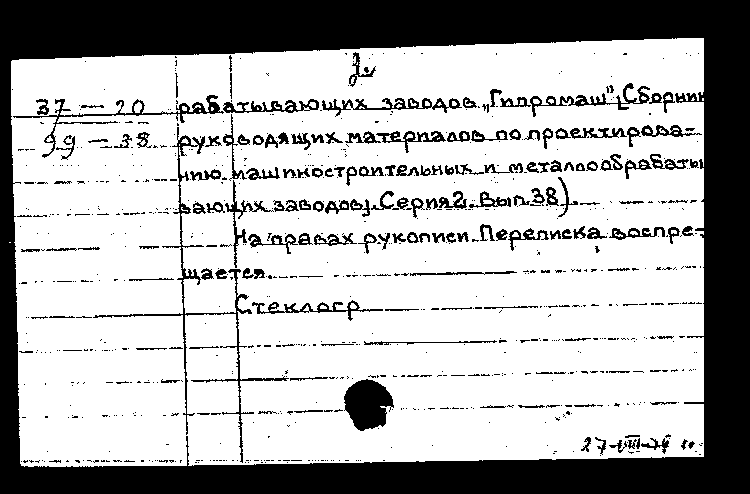 2.
37 — 20 рабатывающих заводов „Гипромаш" [Сборник
99 — 38 руководящих материалов по проектирова=
нию машиностроительных и металлообрабаты
вающих заводов]. Серия 2. Вып. 38).
На правах рукописи. Переписка воспре=
щается.
Стеклогр
27-VIII-74